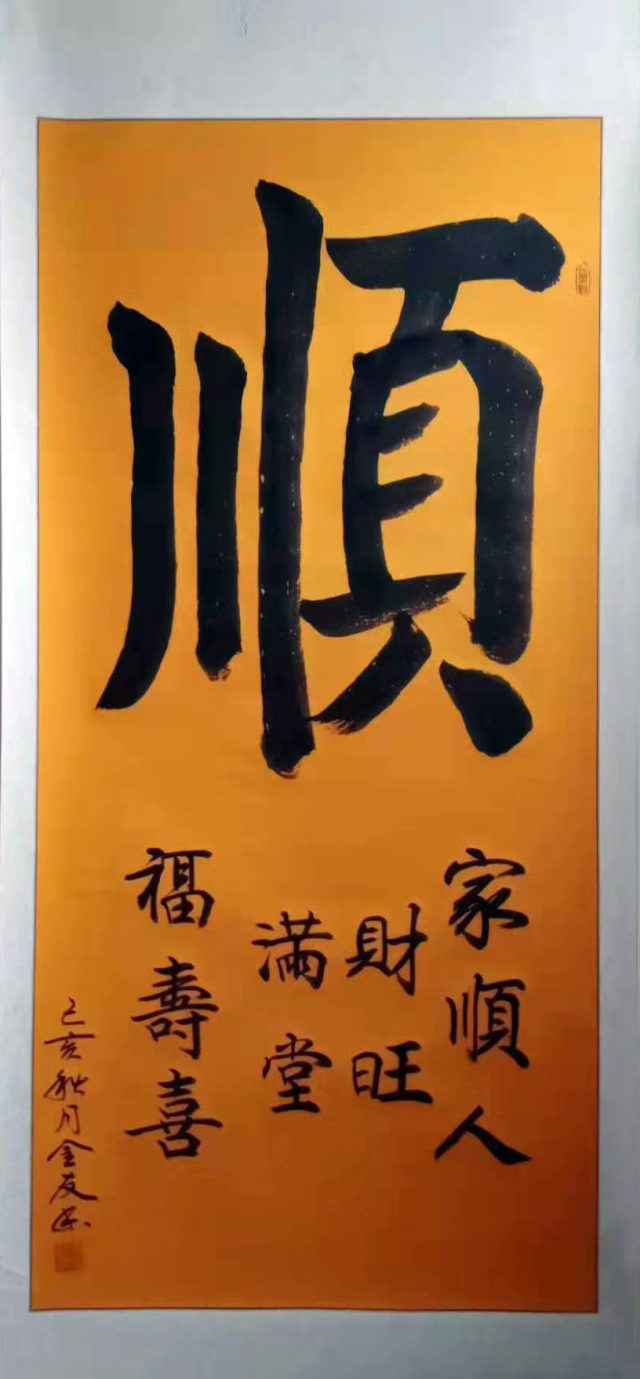 順
家順人
財旺
滿堂
福壽喜
己亥秋月金友书